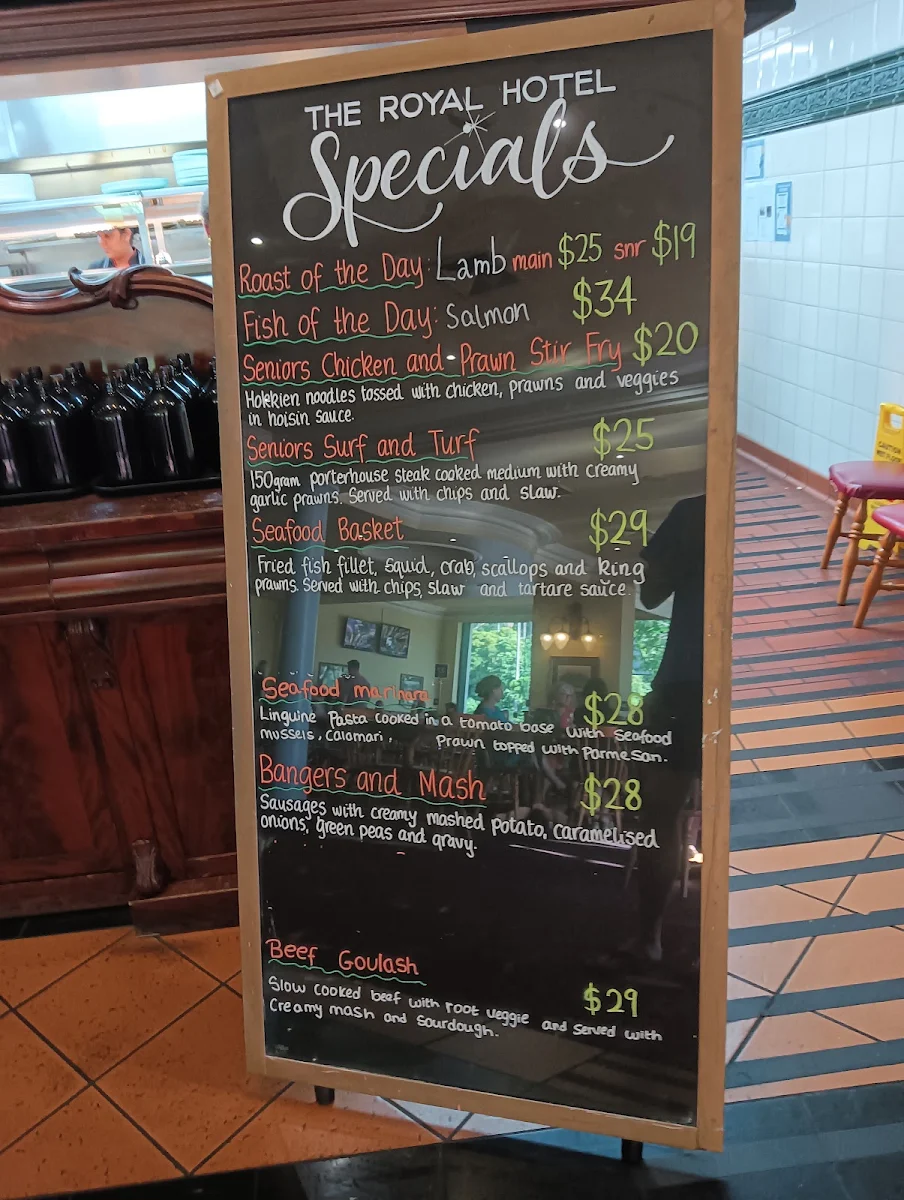 THE ROYAL HOTEL
Specials
Roast of the Day: Lamb main $25 snr $19
Fish of the Day: Salmon $34
Seniors Chicken and Prawn Stir Fry $20
Hokkien noodles tossed with chicken, prawns and veggies
in hoisin sauce.
Seniors Surf and Turf $25
150gram porterhouse steak cooked medium with creamy
garlic prawns. Served with chips and slaw.
Seafood Basket $29
Fried fish fillet, squid, crab, scallops and king
prawns. Served with chips, slaw and tartare sauce.
Seafood marinara $28
Linguine Pasta cooked in a tomato base with seafood
mussels, calamari, Prawn topped with Parmesan.
Bangers and Mash $28
Sausages with creamy mashed potato, caramelised
onions, green peas and gravy.
Beef Goulash
$29
Slow cooked beef with root veggie and served with
Creamy mash and Sourdough.
CAUTION